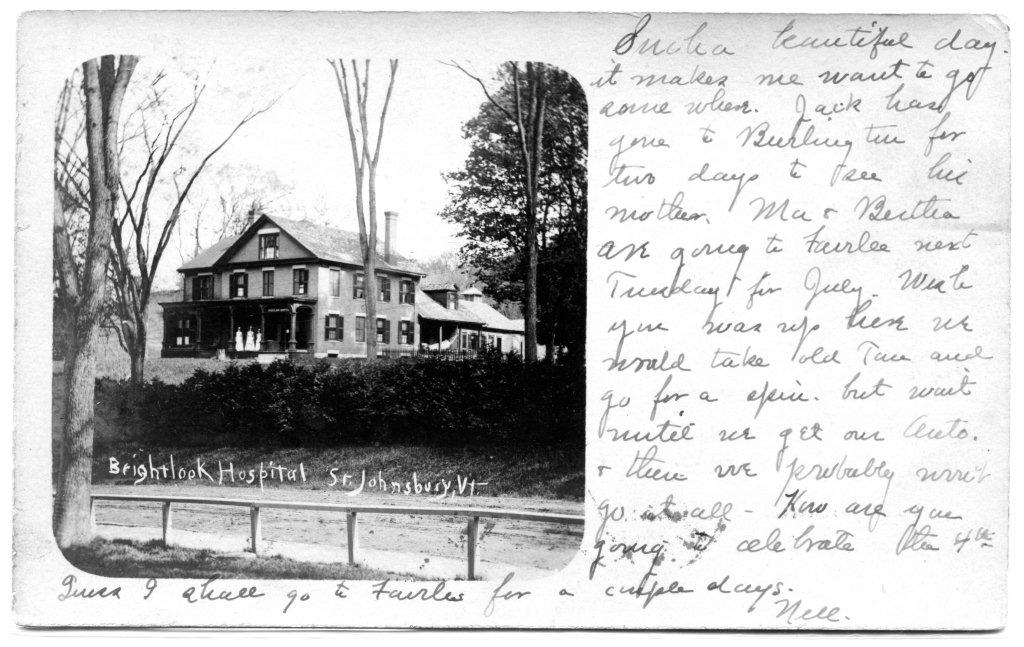 Brightlook Hospital St Johnsbury, Vt.
Such a beautiful day.
it makes me want to go
some where. Jack has
gone to Burlington for
two days to see his
mother. Ma & Bertha
are going to Fairlee next
Tuesday for July. Wish
you was up here we
would take old Tan and
go for a spin. but wait
until we get our Auto.
& then we probably won't
go at all - How are you
going to celebrate the 4th
Guess I shall go to Fairlee for a couple days.
Nell.